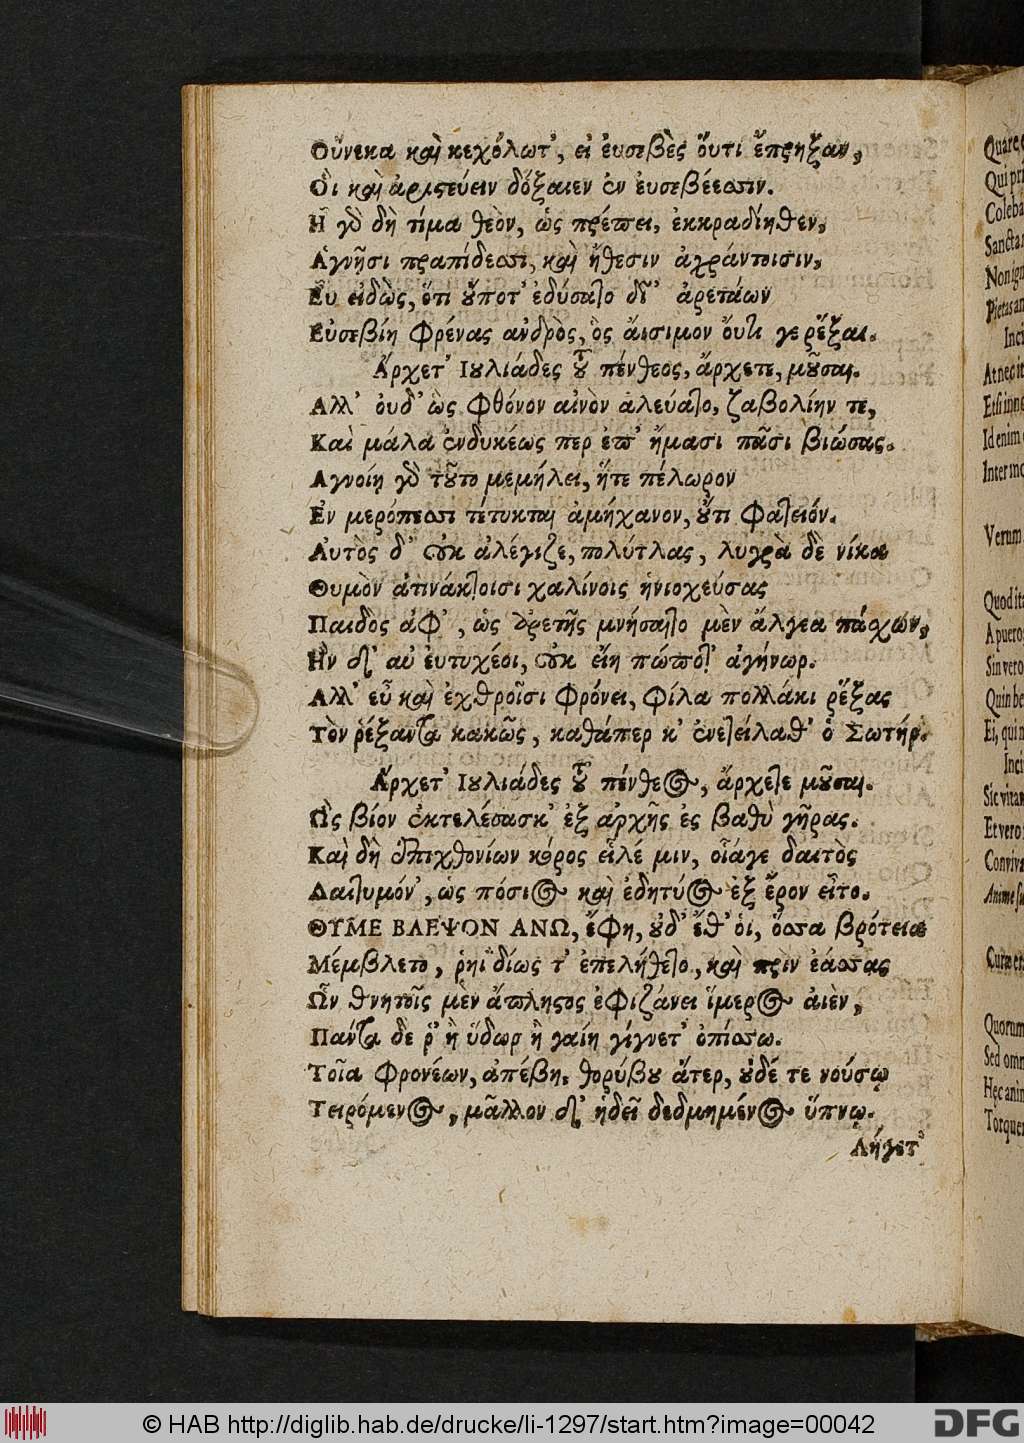 Οὕνεκα καὶ κεχόλωτ', εἰ ἐυσεβὲς ὄυτι ἔπρηξαν,
Οἳ καὶ ἀριστεύειν δόξαιεν ἐν ἐυσεβέεσσιν.
Ἦ γὸ δὴ τίμα θεὸν, ὡς πρέπει, ἐκκραδίηθεν,
Ἁγνῇσι πραπίδεσσι, καὶ ἤθεσιν ἀχράντοισιν,
Εὐ εἰδὼς, ὅτι οὔποτ' ἐδύσατο δἴ' ἀρετάων
Εὐσεβίη φρένας ἀνδρὸς, ὃς ἄισιμον ὄυτι γε ῥέξαι.
Ἄρχετ' Ιουλιάδες τοῦ πένθεος, ἄρχετε, μοῦσαι.
Αλλ' ὀυδ' ὡς φθόνον αἰνὸν ἀλεύατο, ζαβολίην τε,
Καὶ μάλα ἐνδυκέως περ ἐπ' ἤμασι πᾶσι βιώσας.
Αγνοίῃ γὸ τοῦτο μεμήλει, ἥτε πέλωρον
Ἐν μερόπεσσι τέτυκται ἀμήχανον, οὔτι φατειόν.
Ἀυτὸς δ' οὐκ ἀλέγιζε, πολύτλας, λυγρὰ δὲ νίκα
Θυμὸν ἀτινάκτοισι χαλίνοις ἡνιοχεύσας
Παιδὸς ἀφ', ὡς ἀρετῆς μνήσατο μὲν ἄλγεα πάσχων,
Ἢν δ' αὐ ἐυτυχέοι, οὐκ εἴη πώποτ' ἀγήνωρ.
Αλλ' εὖ καὶ ἐχθροῖσι φρόνει, φίλα πολλάκι ῥέξας
Τὸν ῥέξαντα κακῶς, καθάπερ κ' ἐνετείλαθ' ὁ Σωτήρ.
Ἄρχετ' Ιουλιάδες τοῦ πένθεος, ἄρχετε μοῦσαι.
Ὣς βίον ἐκτελέσασκ' ἐξ ἀρχῆς ἐς βαθὺ γῆρας.
Καὶ δὴ ἐπιχθονίων κόρος εἷλέ μιν, οἷάγε δαιτὸς
Δαιτυμόν', ὡς πόσιος καὶ ἐδητύος ἐξ ἔρον εἷτο.
ΘΥΜΕ ΒΛΕΨΟΝ ΑΝΩ, ἔφη, οὐδ' ἔθ' ὁι, ὅσσα βρότεια
Μέμβλετο, ῥηϊδίως τ' ἐπελήθετο, καὶ πρὶν ἐάσσας
Ὧν θνητοῖς μὲν ἄπληστος ἐφιζάνει ἵμερος ἀιὲν,
Πάντα δε ῥ' ἢ ὕδωρ ἢ γαίη γίγνετ' ὀπίσσω.
Τοῖα φρονέων, ἀπέβη, θορύβου ἄτερ, οὐδέ τε νούσῳ
Τειρόμενος, μᾶλλον δ' ἡδεῖ δεδμημένος ὕπνῳ.
Λήγετ'
Quare,
Qui pri
Colebā
Sanctā
Non ign
Pietas an
Inci
At nec it
Etsi inn
Id enim
Inter mo
Verum
Quod ita
A puero
Sin vero
Quin be
Ei, qui
Inci
Sic vitam
Et vero
Conviva
Animæ
Curæ et
Quorum
Sed om
Hęc anim
Torquen
© HAB http://diglib.hab.de/drucke/li-1297/start.htm?image=00042
DFG